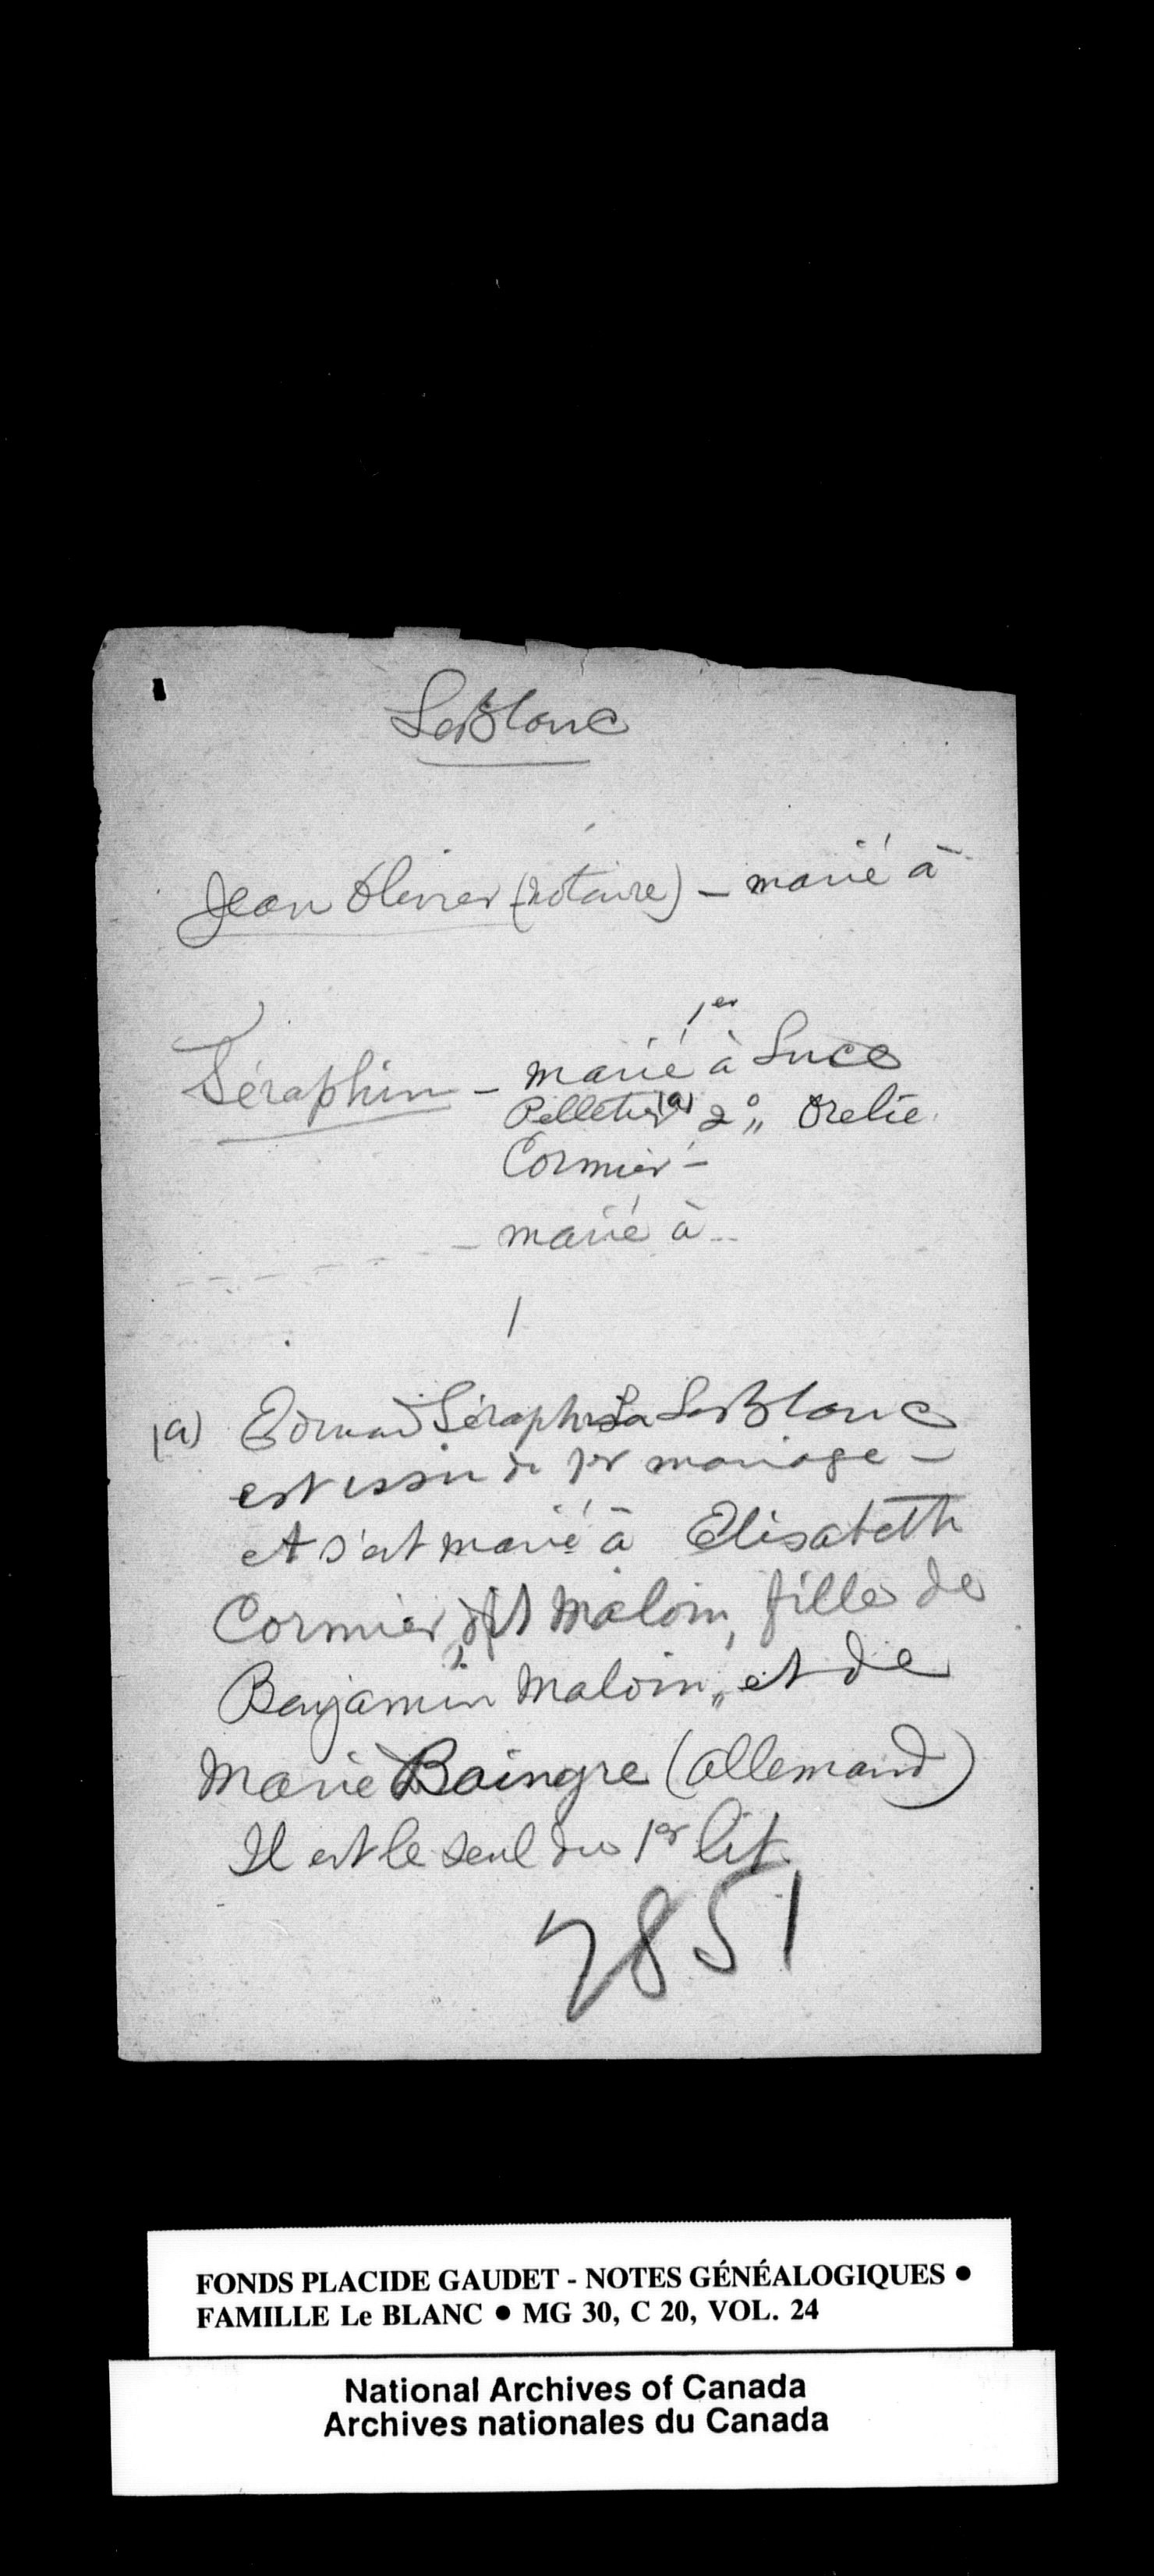 LeBlanc
Jean Olivier (notaire) – marié à
1er
Séraphin – marié à Luce
Pelletier (a) 2° „ Orelie
Cormier –
– marié à
(a) Edouard Séraphin LeBlanc
est issu du 1er mariage –
et s'est marié à Elisabeth
Cormier, dit Maloin, fille de
Benjamin Maloin „ et de
Marie Baingre (allemand)
Il est le seul du 1er lit.
2851
FONDS PLACIDE GAUDET - NOTES GÉNÉALOGIQUES ●
FAMILLE Le BLANC ● MG 30, C 20, VOL. 24
National Archives of Canada
Archives nationales du Canada